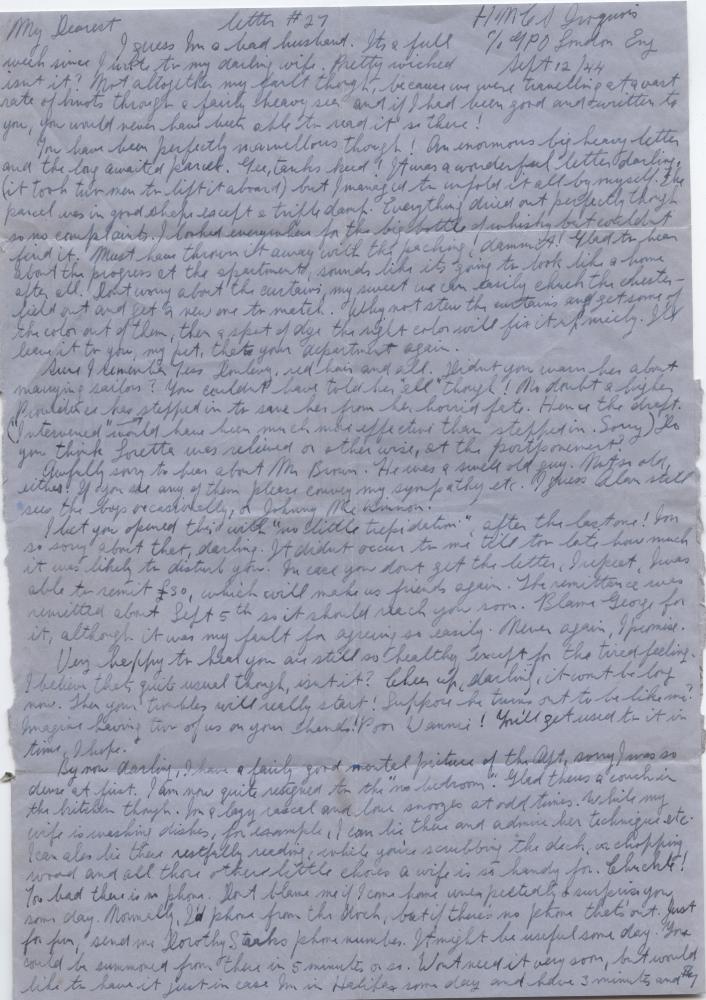 My Dearest letter #27 HMCS Iroquois
c/o GPO London Eng
Sept 12/44
I guess I'm a bad husband. Its a full
week since I wrote to my darling wife. Pretty wicked
isnt it? Not altogether my fault though, because we were travelling at a vast
rate of knots through a fairly heavy sea and if I had been good and written to
you, you would never have been able to read it so there!
You have been perfectly marvellous though! An enormous big heavy letter
and the long awaited parcel. Gee, tanks keed! It was a wonderful letter darling,
(it took two men to lift it aboard) but I managed to unfold it all by myself. The
parcel was in good shape except a trifle damp. Everything dried out perfectly though
so no complaints. I looked everywhere for the big bottle of whisky but couldnt
find it. Must have thrown it away with the packing! dammit! Glad to hear
about the progress at the apartment, sounds like its going to look like a home
after all. Dont worry about the curtains my sweet we can easily chuck the chester-
field out and get a new one to match. Why not stew the curtains and get some of
the color out of them, then a spot of dye the right color will fix it up nicely. I'll
leave it to you, my pet, thats your department again.
Sure I remember Tess Dowling, red hair and all. Didnt you warn her about
marrying sailors? You couldnt have told her "all" though! No doubt a higher
Providence has stepped in to save her from her horrid fate. Hence the draft.
("Intervened" would have been much more effective than stepped in. Sorry) Do
you think Loretta was relieved or otherwise, at the postponement?
Awfully sorry to hear about Mr Brown. He was a swell old guy. Not so old,
either! If you see any of them please convey my sympathy etc. I guess Alan still
sees the boys occasionally, or Johnny
I bet you opened this with "no little trepidation", after the last one! I'm
so sorry about that, darling. It didnt occur to me till too late how much
it was likely to disturb you. In case you dont get the letter, I repeat, I was
able to remit £30, which will make us friends again. The remittance was
remitted about Sept 5th so it should reach you soon. Blame George for
it, although it was my fault for agreeing so easily. Never again, I promise.
Very happy to hear you are still so healthy except for the tired feeling.
I believe thats quite usual though, isnt it? Cheer up, darling, it wont be long
now. Then your troubles will really start! Suppose he turns out to be like me?
Imagine having two of us on your hands! Poor Wannie! You'll get used to it in
time, I hope.
By now darling, I have a fairly good mental picture of the Apt, sorry I was so
dense at first. I am now quite resigned to the "no bedroom". Glad theres a couch in
the kitchen though. Im a lazy rascal and love snoozes at odd times. While my
wife is washing dishes, for example, I can lie there and admire her technique etc.
I can also lie there restfully reading, while you're scrubbing the deck, or chopping
wood and all those other little chores a wife is so handy for. Chuckle!
Too bad there is no phone. Dont blame me if I come home unexpectedly & surprise you
some day. Normally, I'd phone from the dock, but if there's no phone that's out. Just
for fun, send me Dorothy Starks phone number. It might be useful some day. You
could be summoned from there in 5 minutes or so. Wont need it very soon, but would
like to have it just in case Im in Halifax some day and have 3 minutes and they